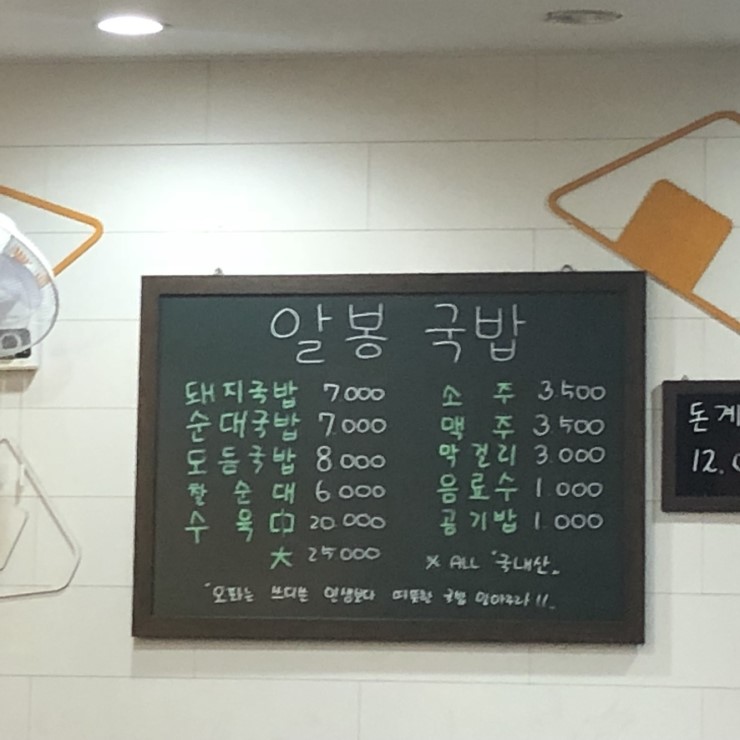 알봉 국밥
돼지국밥 7.000
순대국밥 7.000
모듬국밥 8.000
찰순대 6.000
수육 中 20.000
大 25.000
소주 3.500
맥주 3.500
막걸리 3.000
음료수 1.000
공기밥 1.000
※ ALL "국내산"
"오파는 쓰디쓴 인생보다 따뜻한 국밥 말아주라!!"
돈계
12.0